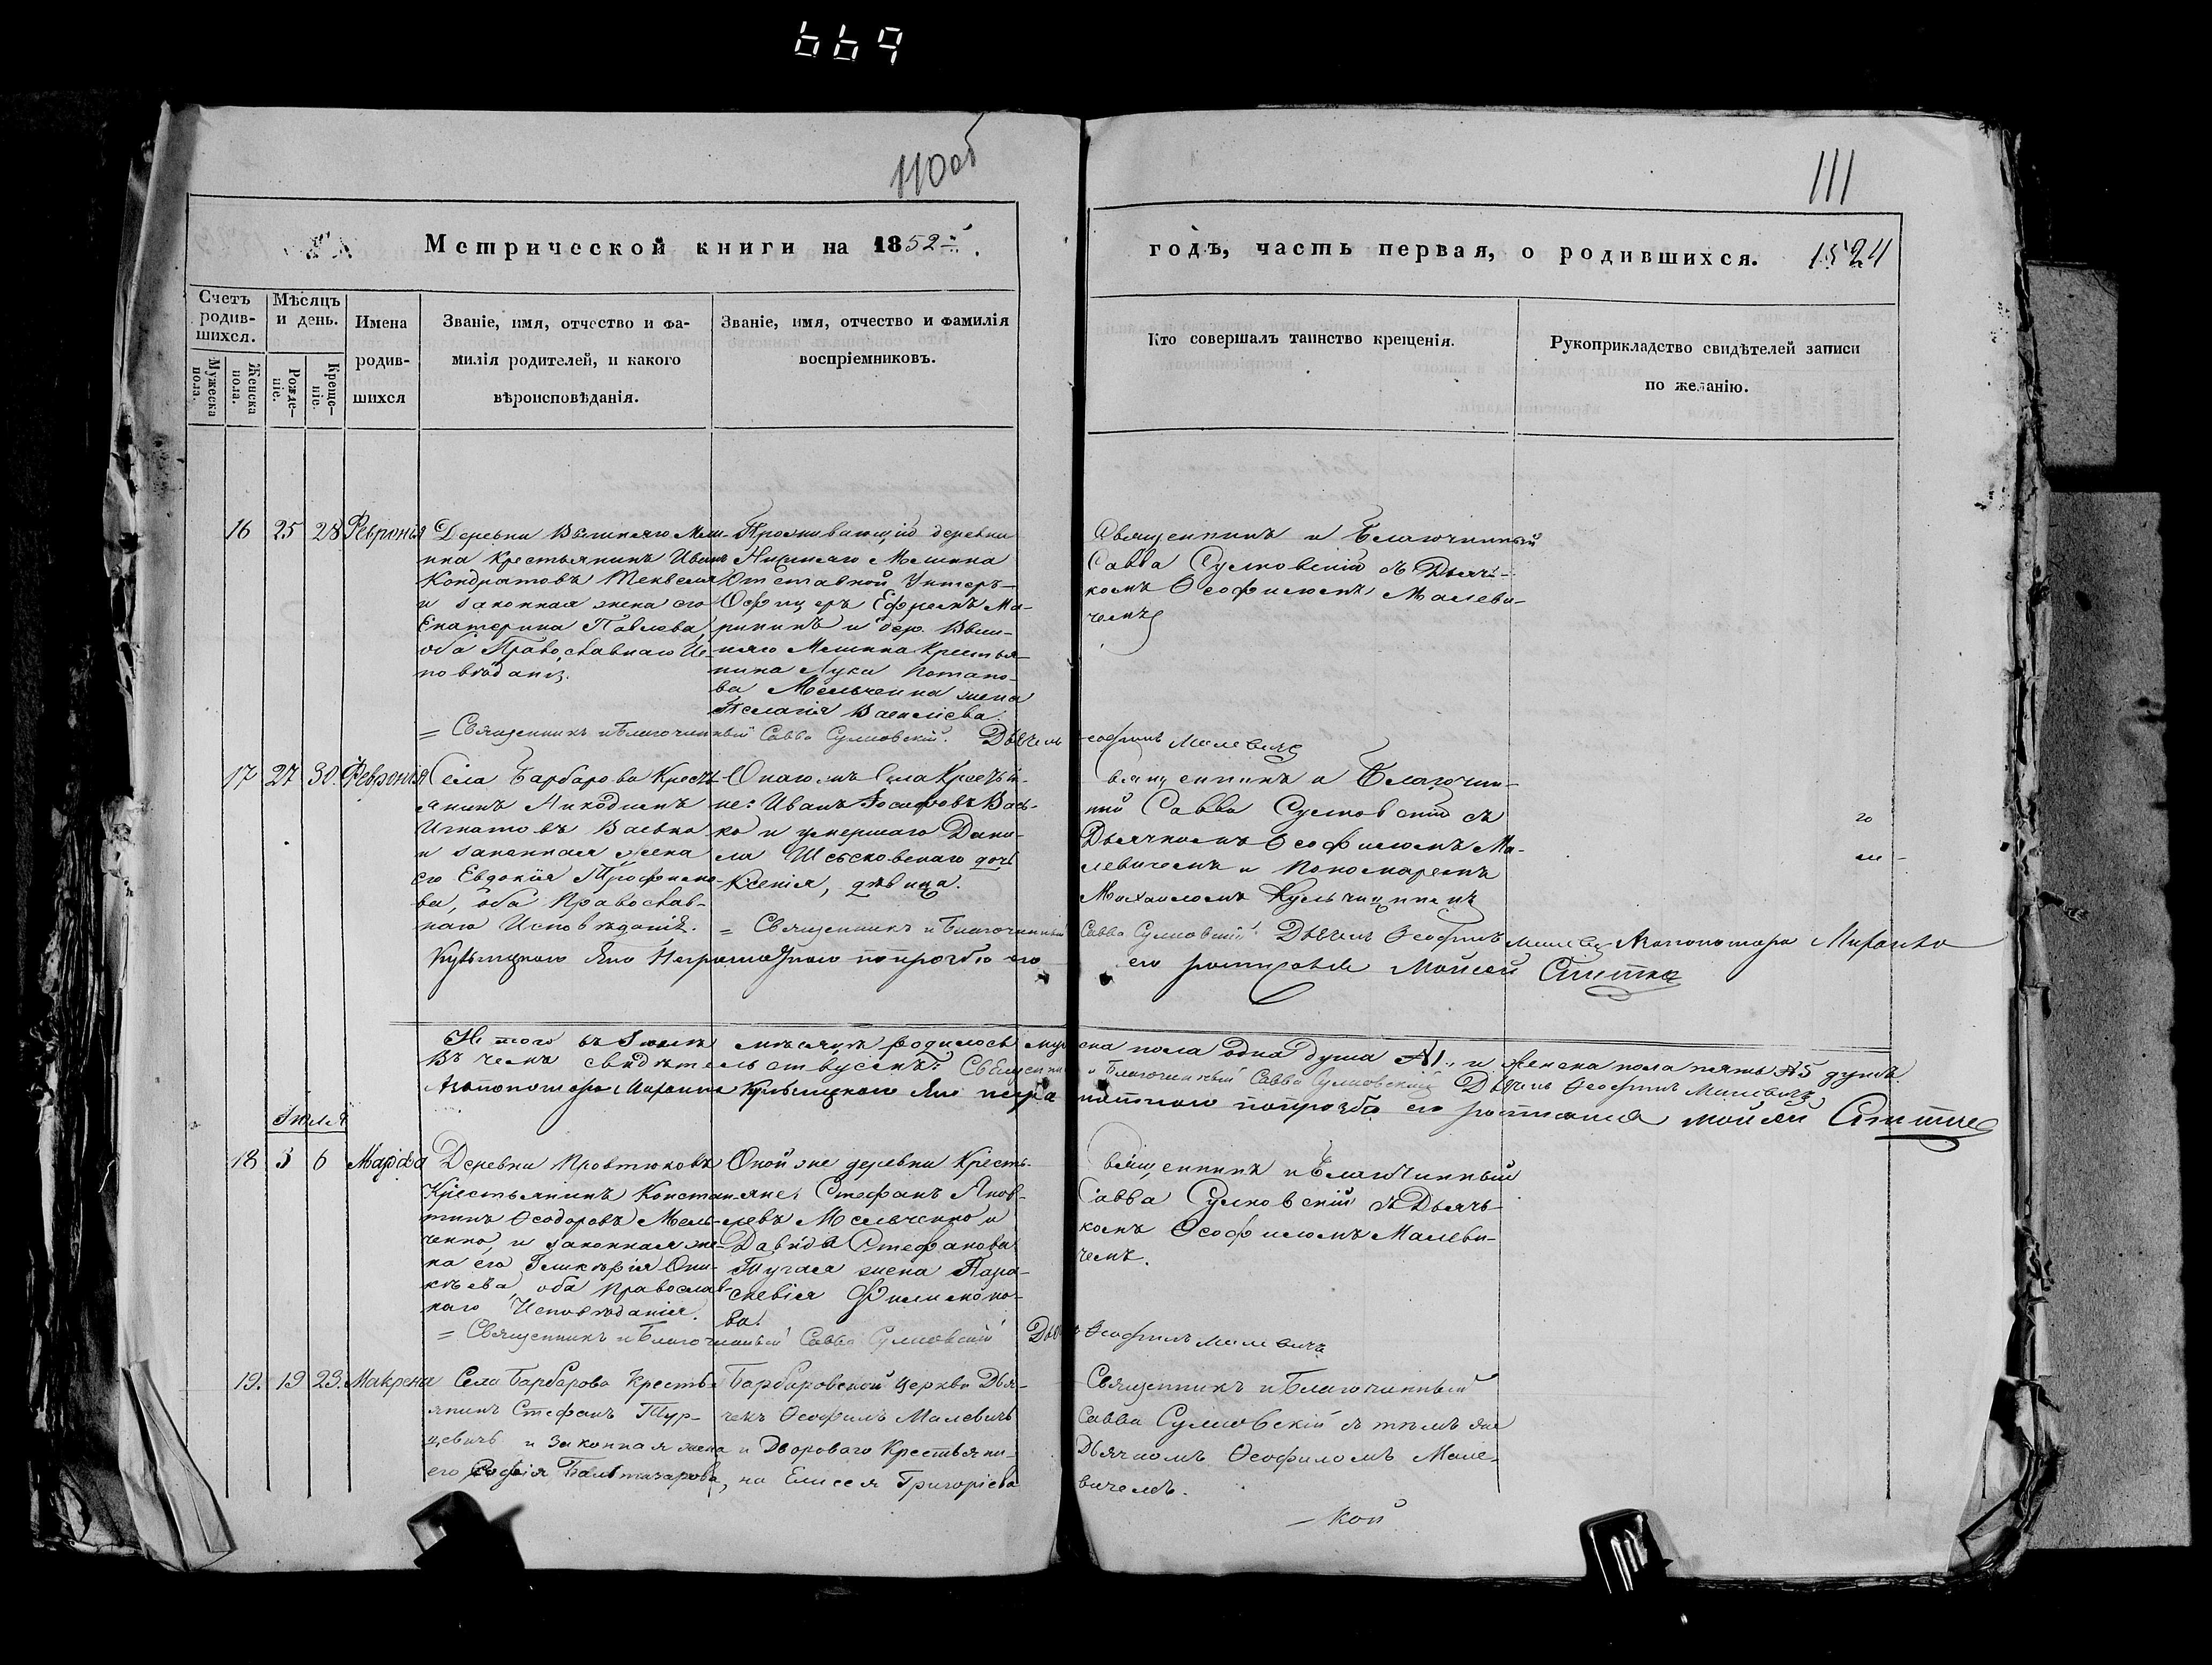 669
110об
111
Метрической книги на 1852й.
годъ, часть первая, о родившихся.
1524
Счетъ родив-шихся.
Мѣсяцъ и день.
Имена родив-шихся
Званіе, имя, отчество и фа-
милія родителей, и какого
вѣроисповѣданія.
Званіе, имя, отчество и фамилія
воспріемниковъ.
Кто совершалъ таинство крещенія.
Рукоприкладство свидѣтелей записи
по желанію.
Мужеска пола.
Женска пола.
Рожде-ніе.
Креще-ніе.
16 25 28 Февронія
Деревни Вышняго Мли-
нка Крестьянинъ Иванъ
Кондратовъ
и законная жена его
Екатерина Павлова,
оба Православнаго Ис-
повѣданія.
Проживающій деревни
Нижняго Млинка
Отставной Унтеръ-
Офицеръ Ефремъ Ма-
рининъ и дер. Выш-
няго Млинка Крестья-
нина Луки Потапо-
ва Мельченка жена
Пелагія Василіева.
Священникъ и Благочинный
Савва Сулковскій съ Дьяч-
комъ Ѳеофиломъ Малеви-
чемъ
= Священникъ и Благочинный Савва Сулковскій. Дьячекъ Ѳеофилъ Малевичъ
17 27 30. Февронія
Села Барбарова Кресть-
янинъ Никодимъ
Игнатовъ Васько
и законная жена
его Евдокія Трофимо-
ва, оба Православ-
наго Исповѣданія.
Онаго жъ Села Крестья-
не: Иванъ Іосифовъ Вась-
ко и умершаго Дани-
ла дочь
Ксенія, дѣвица.
Священникъ и Благочин-
ный Савва Сулковскій съ
Дьячкомъ Ѳеофиломъ Ма-
левичемъ и Пономаремъ
Михаиломъ
= Священникъ и Благочинный Савва Сулковскій. Дьячекъ Ѳеофилъ Малевичъ
его росписался Мойсей
Итого въ Іюнѣ мѣсяцѣ родилось мужеска пола одна душа №1., и женска пола пять №5 душъ.
Въ чемъ свидѣтельствуемъ: Священникъ и Благочинный Савва Сулковскій Дьячекъ Ѳеофилъ Малевичъ
его росписался Мойсей
Іюля
18 5 6 Марѳа
Деревни
Крестьянинъ Констан-
тинъ Ѳеодоровъ Мель-
ченко, и законная же-
на его Гликерія Они-
кѣева, оба Православ-
наго Исповѣданія.
Оной же деревни Кресть-
яне: Стефанъ Яков-
левъ Мельченко и
Давида Стефанова
жена Пара-
скевія Филимоно-
ва.
Священникъ и Благочинный
Савва Сулковскій съ Дьяч-
комъ Ѳеофиломъ Малеви-
чемъ.
= Священникъ и Благочинный Савва Сулковскій Дьячекъ Ѳеофилъ Малевичъ
19. 19 23. Макрена
Села Барбарова Кресть-
янинъ Стефанъ Тур-
цевичъ и законная жена
его Софія Балтазарова,
Барбаровской церкви Дья-
чекъ Ѳеофилъ Малевичъ
и Двороваго Крестьяни-
на Елисея Григоріева
Священникъ и Благочинный
Савва Сулковскій съ тѣмъ же
Дьячкомъ Ѳеофиломъ Мале-
вичемъ.
– кой